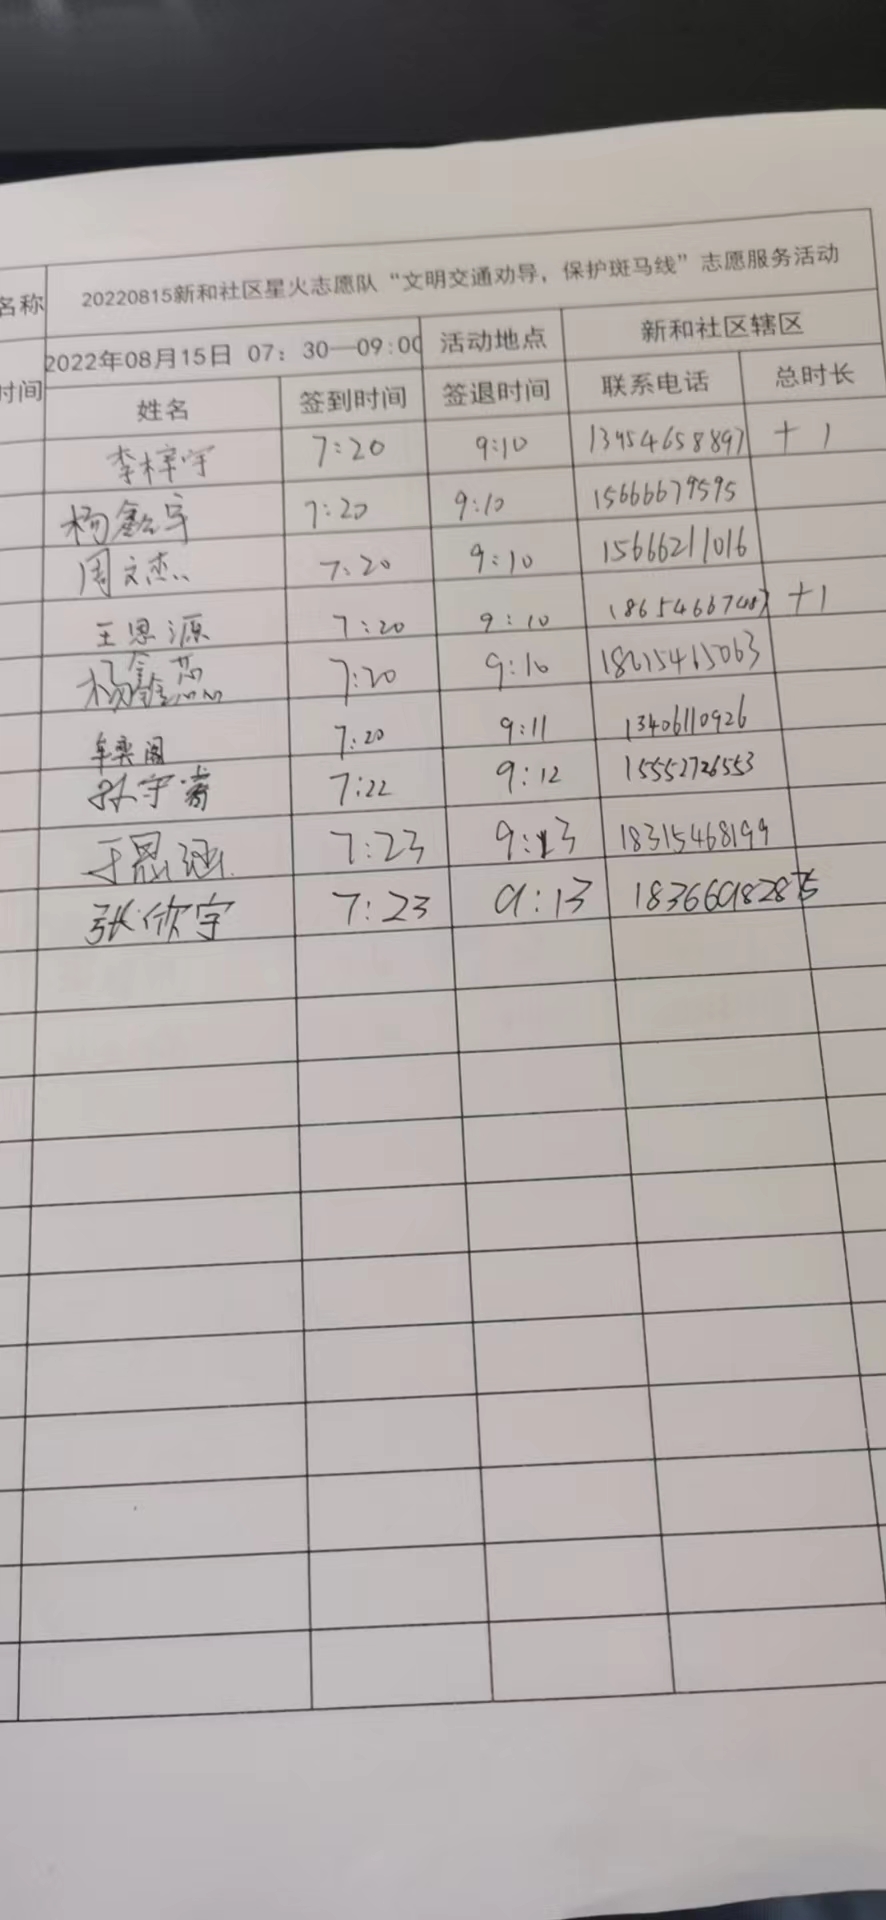 名称 20220815新和社区星火志愿队“文明交通劝导，保护斑马线”志愿服务活动
时间 2022年08月15日 07：30—09:00 活动地点 新和社区辖区
姓名 签到时间 签退时间 联系电话 总时长
李梓宇 7:20 9:10 13954658897 +1
杨鑫宇 7:20 9:10 15666679595
周文杰 7:20 9:10 15666211016
王恩源 7:20 9:10 +1
杨鑫蕊 7:20 9:10
车奕阁 7:20 9:11 13406110926
孙宇 7:22 9:12 15552726553
于恩涵 7:23 9:13 18315468199
张欣宇 7:23 9:13